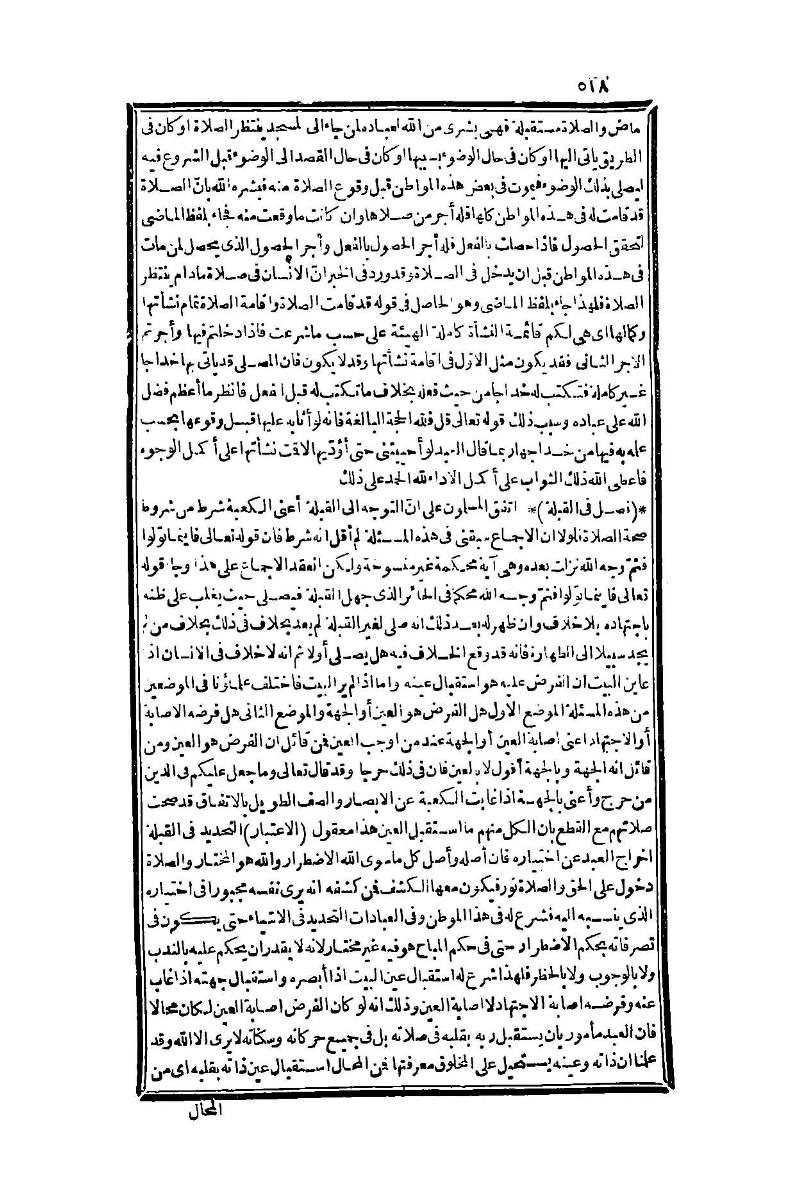 ٥١٨
ماض والصلاة مستقبلة فهى بشرى من الله لعباده لمن جاء الى المسجد ينتظر الصلاة او كان فى
الطريق ياتى اليها او كان فى حال الوضوء بسببها او كان فى حال القصد الى الوضوء قبل الشروع فيه
ليصلى بذلك الوضوء فيموت فى بعض هذه المواطن قبل وقوع الصلاة منه فبشره الله بانّ الصلاة
قد قامت له فى هذه المواطن كلها فله أجر من صلاها وان كانت ما وقعت منه فجاء بلفظ الماضى
لتحقق الحصول فاذا حصلت بالفعل فله أجر الحصول بالفعل وأجر الحصول الذى يحصل لمن مات
فى هذه المواطن قبل ان يدخل فى الصلاة وقد ورد فى الخبر انّ الانسان فى صلاة مادام ينتظر
الصلاة فلهذا جاء بلفظ الماضى وهو الحاصل فى قوله قد قامت الصلاة واقامة الصلاة تمام نشأتها
وكمالها اى هى لكم قائمة النشأة كاملة الهيئة على حسب ما شرعت فاذا دخلتم فيها وأجرتم
الاجر الثانى فقد يكون مثل الاوّل فى اقامة نشأتها وقد لا يكون فان المصلى قد ياتى بها خداجا
غير كاملة فتكتب له خداجا من حيث فعله بخلاف ما تكتب له قبل الفعل فانظر ما أعظم فضل
الله على عباده وسبب ذلك قوله تعالى قل فلله الحجة البالغة فانه لو أثابه عليها قبل وقوعها بحسب
علمه به فيها من خداجها ربما قال العبد لو أحييتنى حتى أؤدّيها لاقمت نشأتها على أكمل الوجوه
فاعطى الله ذلك الثواب على أكمل الاداء لله الحمد على ذلك
*(فصل فى القبلة)* اتفق المسلمون على انّ التوجه الى القبلة أعنى الكعبة شرط من شروط
صحة الصلاة فلولا ان الاجماع سبقنى فى هذه المسئلة لم أقل انه شرط فان قوله تعالى فاينما تولوا
فثم وجه الله نزلت بعده وهى آية محكمة غير منسوخة ولكن انعقد الاجماع على هذا وجاء قوله
تعالى فاينما تولوا فثم وجه الله محكم فى الحائر الذى جهل القبلة فيصلى حيث يغلب على ظنه
باجتهاده بلا خلاف وان ظهر له بعد ذلك انه صلى لغير القبلة لم يعد بخلاف فى ذلك بخلاف من لم
يجد سبيلا الى الطهارة فانه قد وقع الخلاف فيه هل يصلى أو لا ثم انه لا خلاف فى الانسان اذا
عاين البيت ان الفرض عليه هو استقبال عينه واما اذا لم ير البيت فاختلف علماؤنا فى الموضعين
من هذه المسئلة الموضع الاول هل الفرض هو العين أو الجهة والموضع الثانى هل فرضه الاصابة
أو الاجتهاد اعنى اصابة العين أو الجهة عند من اوجب العين فمن قائل ان الفرض هو العين ومن
قائل انه الجهة وبالجهة أقول لا بالعين فان فى ذلك حرجا وقد قال تعالى وما جعل عليكم فى الدين
من حرج وأعنى بالجهة اذا غابت الكعبة عن الابصار والصف الطويل بالاتفاق قد صحت
صلاتهم مع القطع بان الكل منهم ما استقبل العين هذا معقول (الاعتبار) التحديد فى القبلة
اخراج العبد عن اختياره فان أصله وأصل كل ماسوى الله الاضطرار والله هو المختار والصلاة
دخول على الحق والصلاة نور فيكون معها الكشف فمن كشفه انه يرى نفسه مجبورا فى اختياره
الذى ينسبه اليه فشرع له فى هذا الموطن وفى العبادات التحديد فى الاشياء حتى يكون فى
تصرفاته بحكم الاضطرار حتى فى حكم المباح هو فيه غير مختار لانه لا يقدر ان يحكم عليه بالندب
ولا بالوجوب ولا بالحظر فلهذا شرع له استقبال عين البيت اذا أبصره واستقبال جهته اذا غاب
عنه وفرضه اصابة الاجتهاد لا اصابة العين وذلك انه لو كان الفرض اصابة العين لكان محالا
فان العبد مأمور بان يستقبل ربه بقلبه فى صلاته بل فى جميع حركاته وسكناته لا يرى الا الله وقد
علمنا ان ذاته وعينه يستحيل على المخلوق معرفتها فمن المحال استقبال عين ذاته بقلبه اى من
المحال